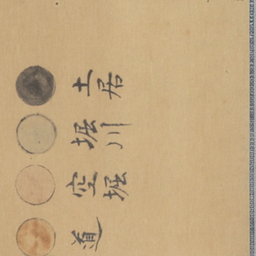 土居
堀川
空堀
道